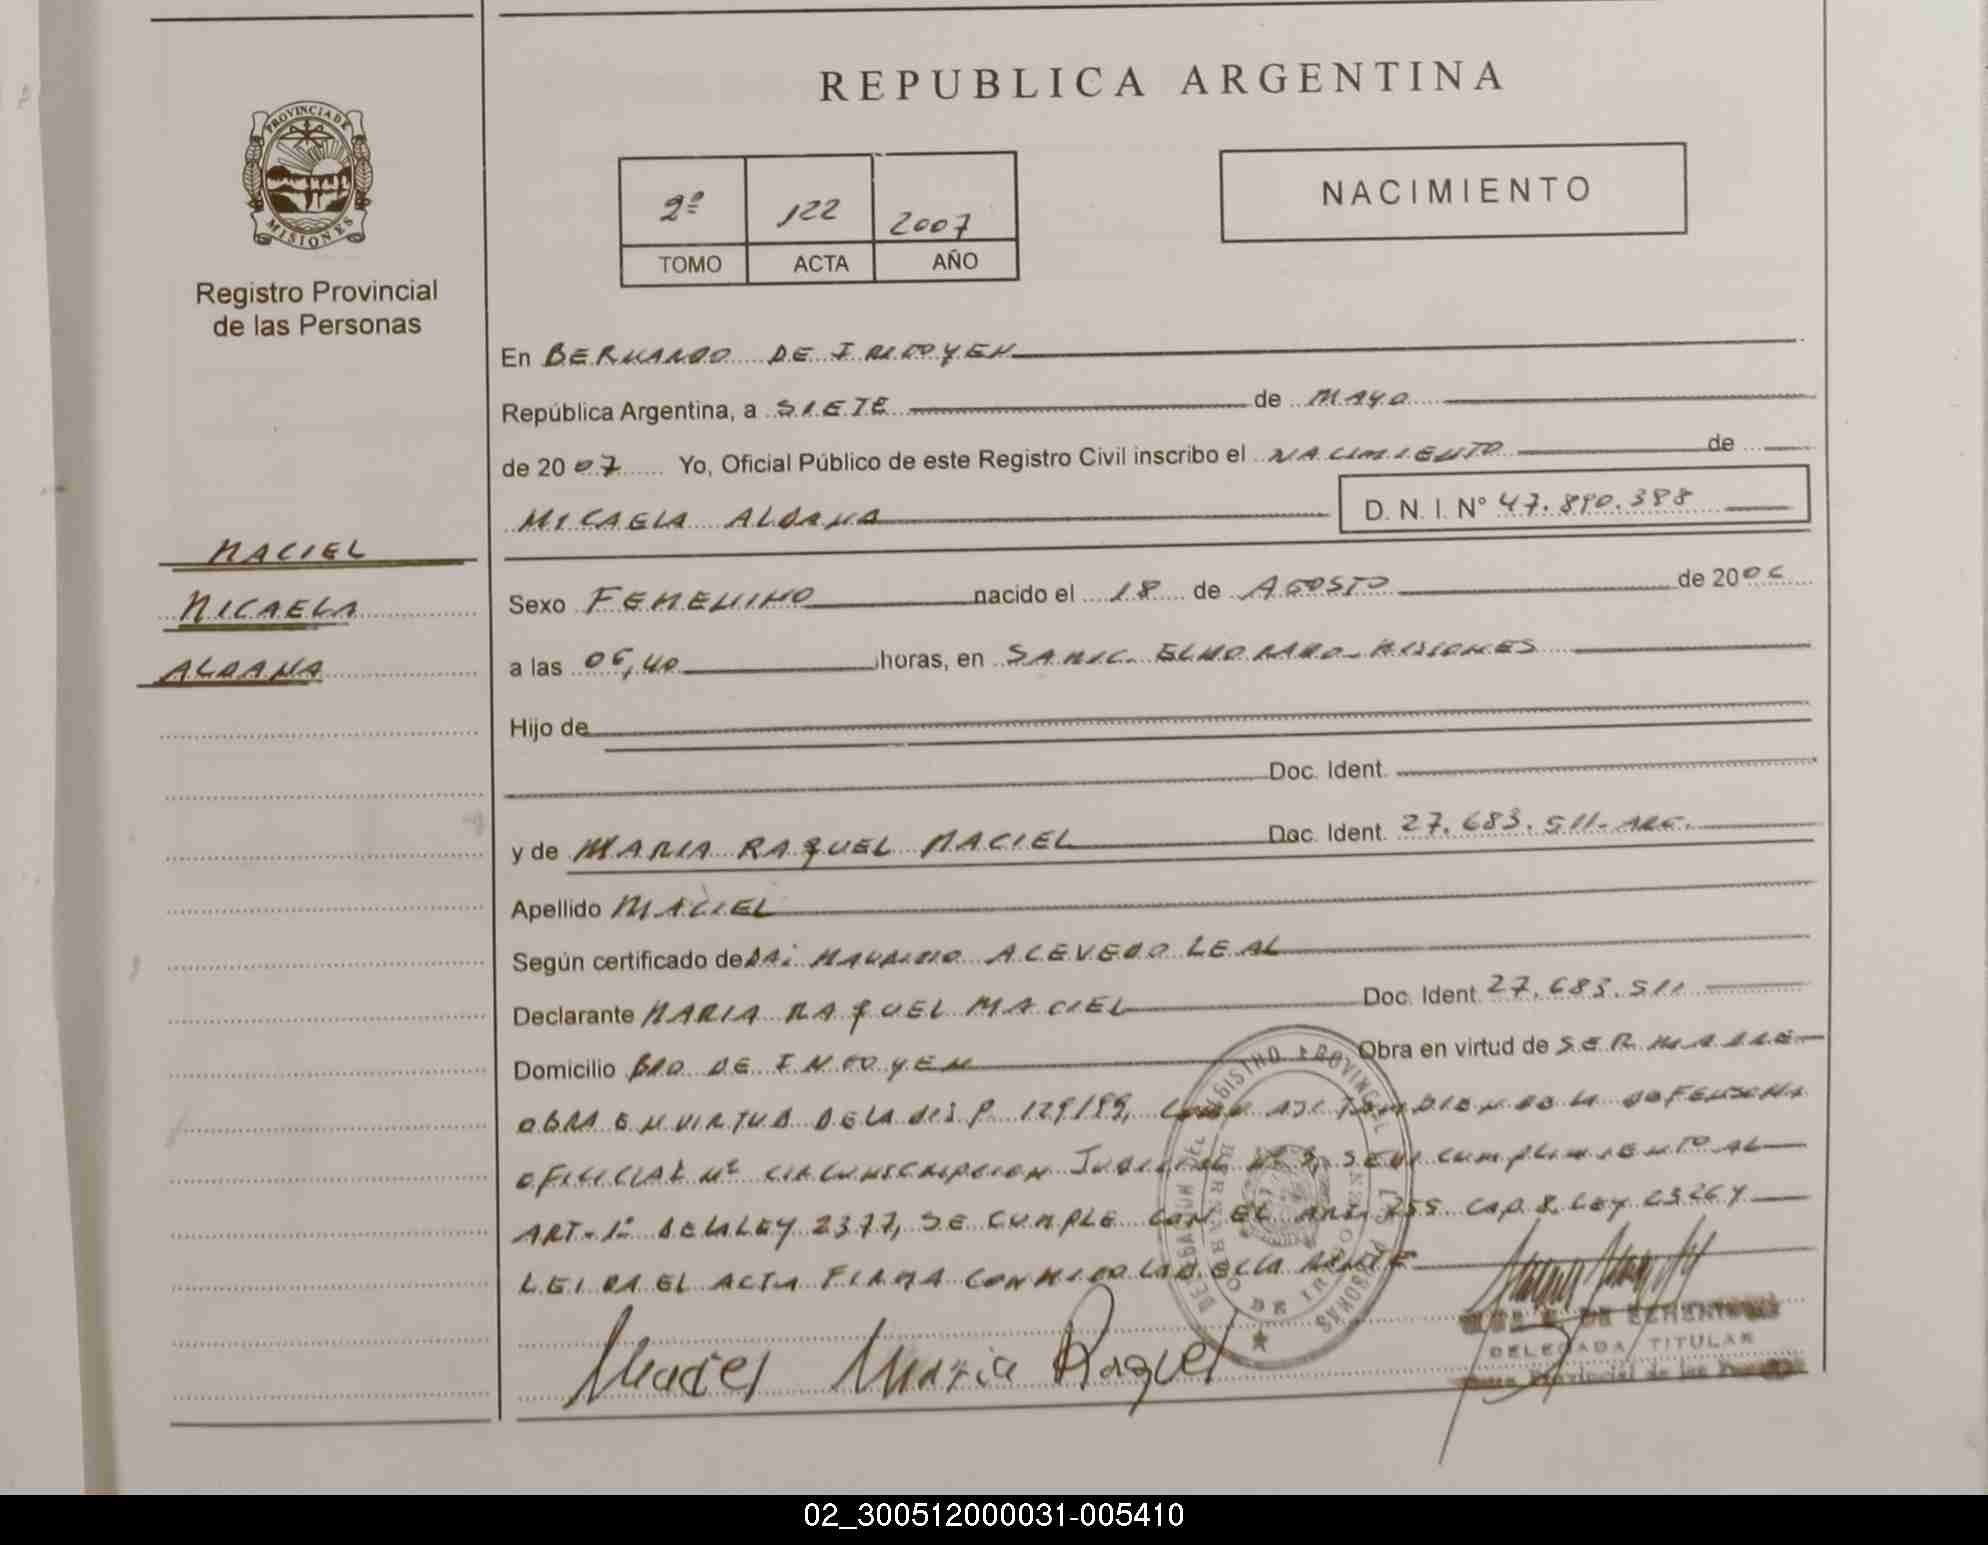 REPUBLICA ARGENTINA
PROVINCIA DE MISIONES
Registro Provincial
de las Personas
2º 122 2007
TOMO ACTA AÑO
NACIMIENTO
En BERNARDO DE IRIGOYEN
República Argentina, a SIETE de MAYO
de 2007 Yo, Oficial Público de este Registro Civil inscribo el NACIMIENTO de
MICAELA ALDANA D. N. I. Nº 47.890.388
MACIEL
MICAELA
ALDANA
Sexo FEMENINO nacido el 18 de AGOSTO de 2006
a las 06,40 horas, en SANIC. ELDORADO-MISIONES
Hijo de
Doc. Ident.
y de MARIA RAQUEL MACIEL Doc. Ident. 27.683.511-ARG.
Apellido MACIEL
Según certificado de DR: MAURICIO ACEVEDO LEAL
Declarante MARIA RAQUEL MACIEL Doc. Ident 27.683.511
Domicilio BDO DE IRIGOYEN Obra en virtud de SER MADRE
OBRA EN VIRTUD DE LA DISP. 129/99, COMO ASI TAMBIEN DE LA DEFENSORIA
OFICIAL Nº CIRCUNSCRIPCION JUDICIAL Nº CUMPLIMIENTO AL
ART-1º DE LA LEY 2377, SE CUMPLE CON EL ART. 255 CAP. 8 LEY 23264
LEIDA EL ACTA FIRMA CONMIGO LA DECLARANTE
Maciel Maria Raquel
DELEGADA TITULAR
Provincial de las
02_300512000031-005410